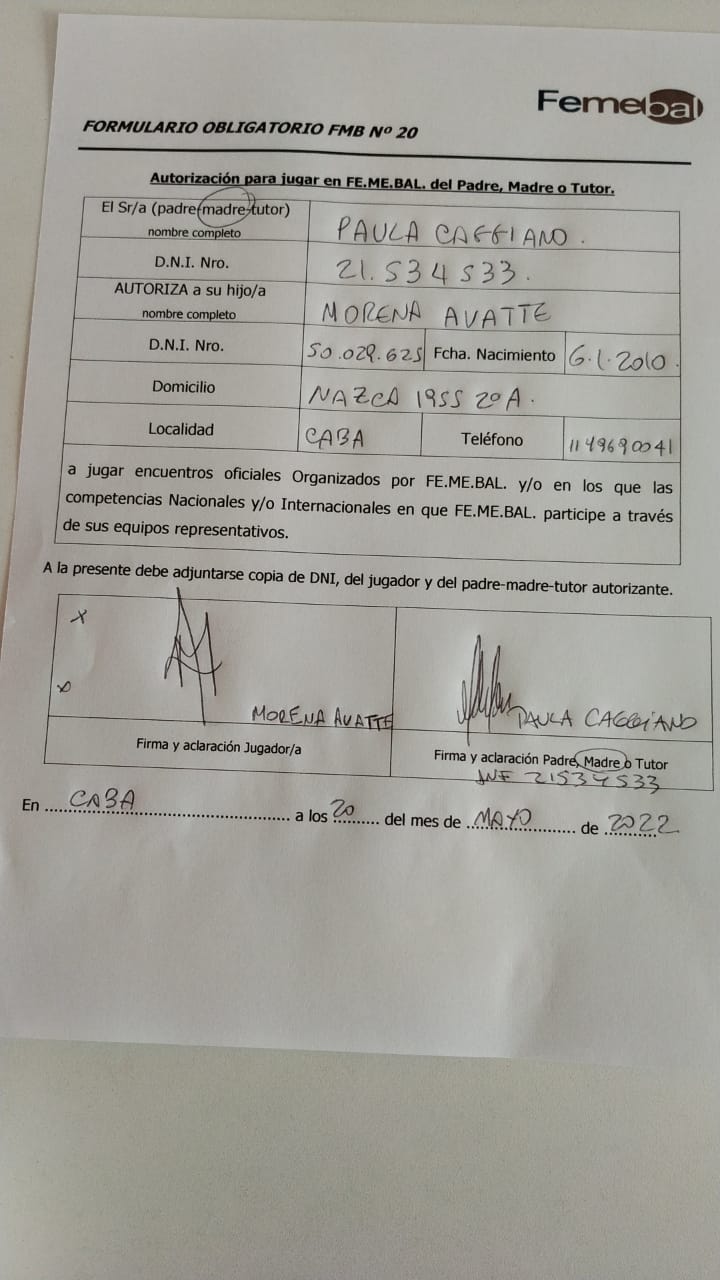 Femebal
FORMULARIO OBLIGATORIO FMB Nº 20
Autorización para jugar en FE.ME.BAL. del Padre, Madre o Tutor.
El Sr/a (padre-madre-tutor)
nombre completo
PAULA CAGGIANO.
D.N.I. Nro.
21.534533.
AUTORIZA a su hijo/a
nombre completo
MORENA AVATTE
D.N.I. Nro.
50.029.625
Fcha. Nacimiento
6.1.2010.
Domicilio
NAZCA 1955 2º A.
Localidad
CABA
Teléfono
1149690041
a jugar encuentros oficiales Organizados por FE.ME.BAL. y/o en los que las
competencias Nacionales y/o Internacionales en que FE.ME.BAL. participe a través
de sus equipos representativos.
A la presente debe adjuntarse copia de DNI, del jugador y del padre-madre-tutor autorizante.
MORENA AVATTE
Firma y aclaración Jugador/a
PAULA CAGGIANO
Firma y aclaración Padre, Madre o Tutor
21534533
En CABA a los 20 del mes de MAYO de 2022